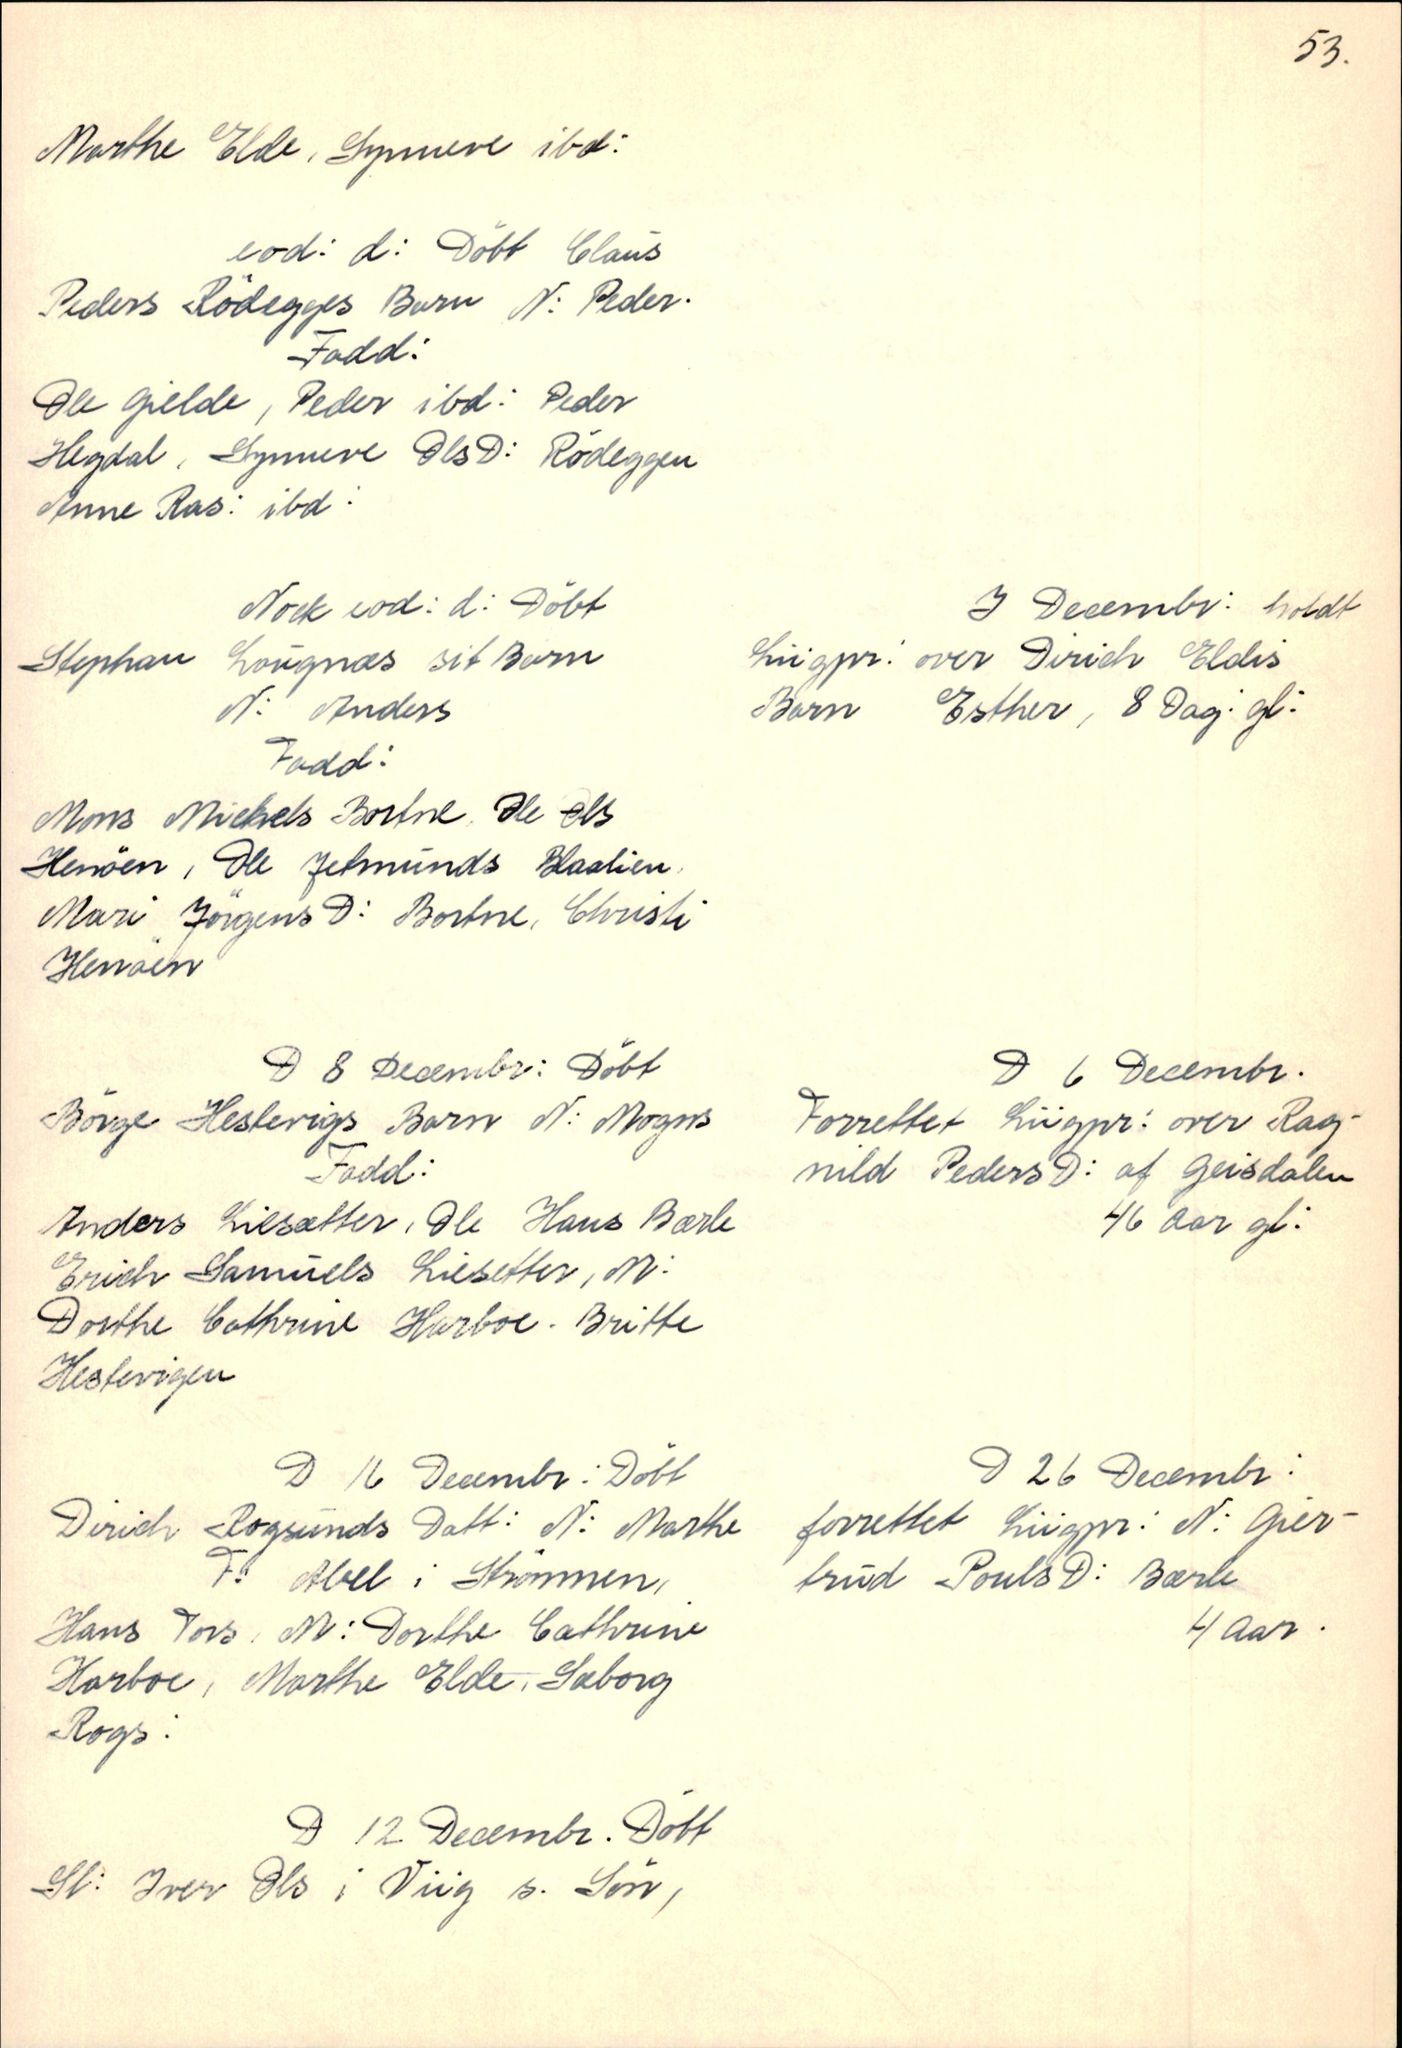 53.
Marthe Elde, Synneve ibd:
eod: d: Döbt Claus
Peders Rödegges Barn N: Peder.
Fadd:
Ole Gielde, Peder ibd: Peder
Hegdal, Synneve OlsD: Rödeggen
Anne Ras: ibd:
Nock eod: d: Döbt
Stephan Lougnæs sit Barn
N: Anders
Fadd:
Mons Mickels Bortne, Ole Ols
Henöen, Ole Jetmunds Blaalien,
Mari JörgensD: Bortne, Christi
Henöen
D 8 Decembr: Döbt
Börge Hestevigs Barn N: Mogns
Fadd:
Anders Liesætter, Ole Hans Bærle
Erich Samuels Liesetter, M:
Dorthe Cathrine Harboe. Britte
Hestevigen
D 16 Decembr: Döbt
Dirich Rogsunds Datt: N: Marthe
F: Abel i Strömmen,
Hans Tors, M: Dorthe Cathrine
Harboe, Marthe Elde, Sæborg
Rogs:
D 12 Decembr. Döbt
Sl: Iver Ols i Viig s. Sön,
J Decembr: holdt
Liigpr: over Dirich Eldis
Barn Esther, 8 Dag: gl:
D 6 Decembr.
Forrettet Liigpr: over Rag-
nild PedersD: af Geisdalen
46 Aar gl:
D 26 Decembr:
forrettet Liigpr: N: Gier-
trud PoulsD: Bærle
4 Aar.